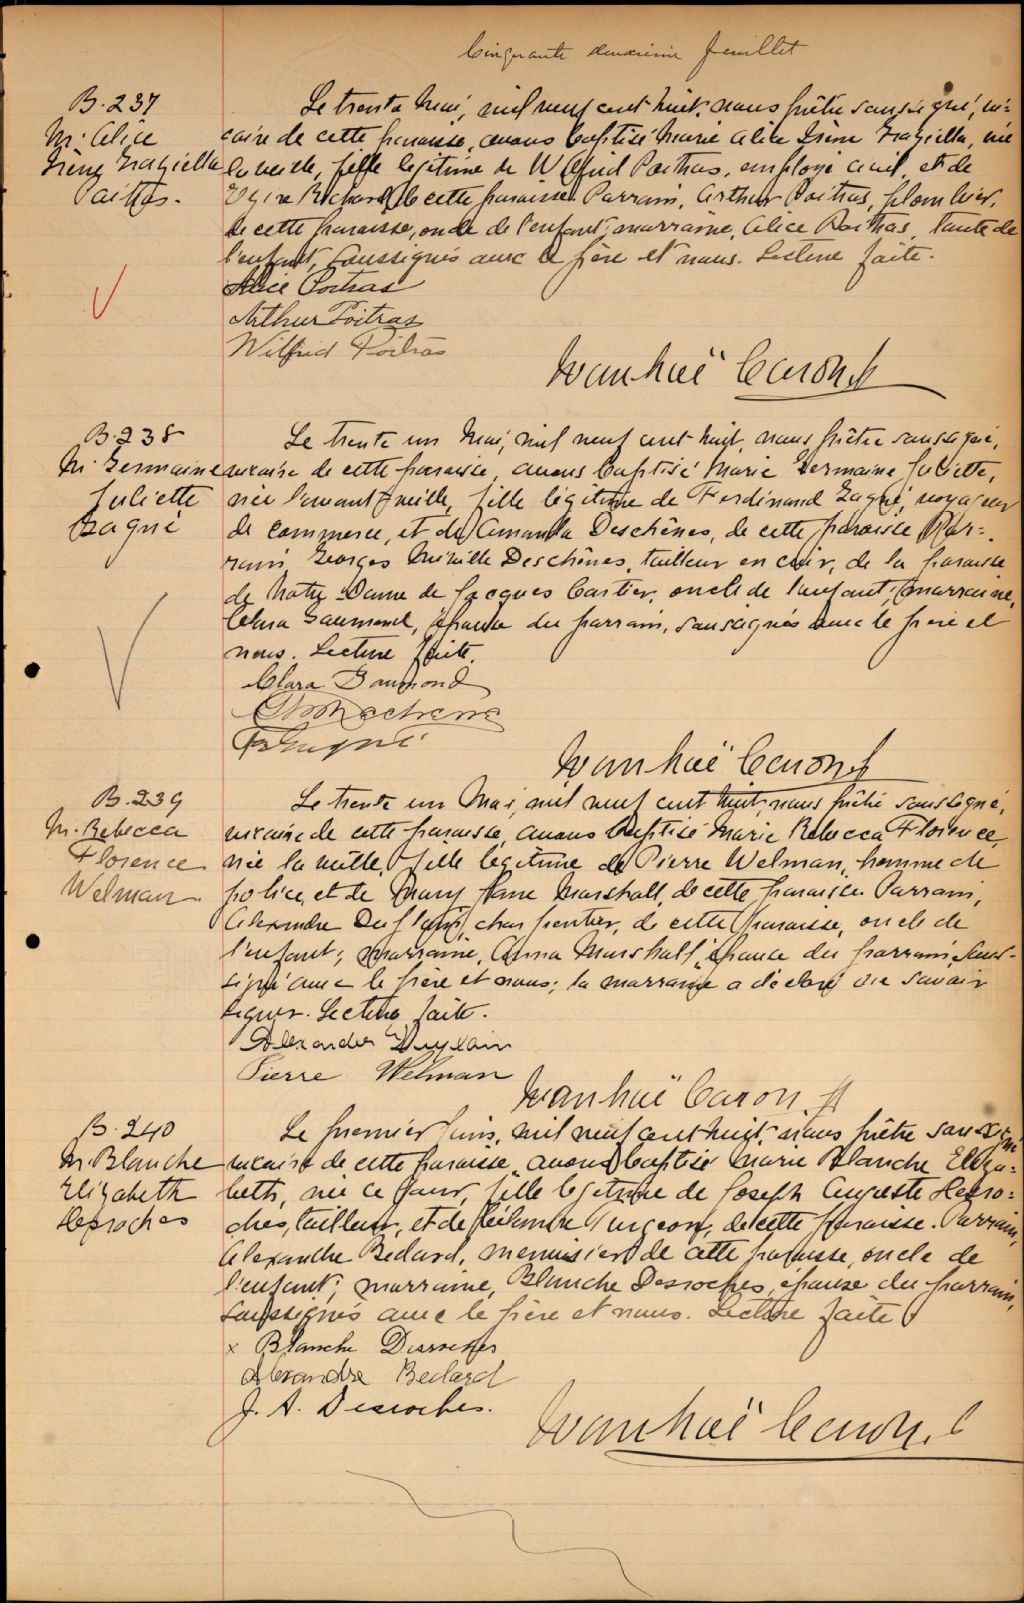 Cinquante deuxième feuillet
B. 237
M. Alice
Irène Graziella
Poitras.
Le trente Mai, mil neuf cent huit, nous prêtre soussigné, vi-
caire de cette paroisse, avons baptisé Marie Alice Irène Graziella, née
la veille, fille légitime de Wilfrid Poitras, employé civil, et de
Richard, de cette paroisse. Parrain, Arthur Poitras, plombier,
de cette paroisse, oncle de l'enfant; marraine, Alice Poitras, tante de
l'enfant, soussignés avec le père et nous. Lecture faite.
Alice Poitras
Arthur Poitras
Wilfrid Poitras
Ivanhoë Caron, ptr
B. 238
M. Germaine
Juliette
Gagné
Le trente un Mai, mil neuf cent huit, nous prêtre soussigné,
vicaire de cette paroisse, avons baptisé Marie Germaine Juliette,
née l'avant veille, fille légitime de Ferdinand Gagné, voyageur
de commerce, et de Amanda Deschênes, de cette paroisse. Par-
rain, Georges Deschênes, tailleur en cuir, de la paroisse
de Notre Dame de Jacques Cartier, oncle de l'enfant; marraine,
Clara Gaumond, épouse du parrain, soussignés avec le père et
nous. Lecture faite.
Clara Gaumond
F Gagné
Ivanhoë Caron, ptr
B. 239
M. Rebecca
Florence
Welman.
Le trente un Mai, mil neuf cent huit, nous prêtre soussigné,
vicaire de cette paroisse, avons baptisé Marie Rebecca Florence,
née la veille, fille légitime de Pierre Welman, homme de
police, et de Mary Jane Marshall, de cette paroisse. Parrain,
Alexandre Duplain, charpentier, de cette paroisse, oncle de
l'enfant; marraine, Anna Marshall, épouse du parrain, sous-
signé avec le père et nous; la marraine a déclaré ne savoir
signer. Lecture faite.
Alexandre Duplain
Pierre Welman
Ivanhoë Caron, ptr
B. 240
M. Blanche
Elizabeth
Desroches
Le premier Juin, mil neuf cent huit, nous prêtre soussigné
vicaire de cette paroisse, avons baptisé Marie Blanche Eliza-
beth, née ce jour, fille légitime de Joseph Auguste Desro-
ches, tailleur, et de Turgeon, de cette paroisse. Parrain,
Alexandre Bedard, menuisier, de cette paroisse, oncle de
l'enfant; marraine, Blanche Desroches, épouse du parrain,
soussignés avec le père et nous. Lecture faite
x Blanche Desroches
Alexandre Bedard
J. A. Desroches.
Ivanhoë Caron, ptr